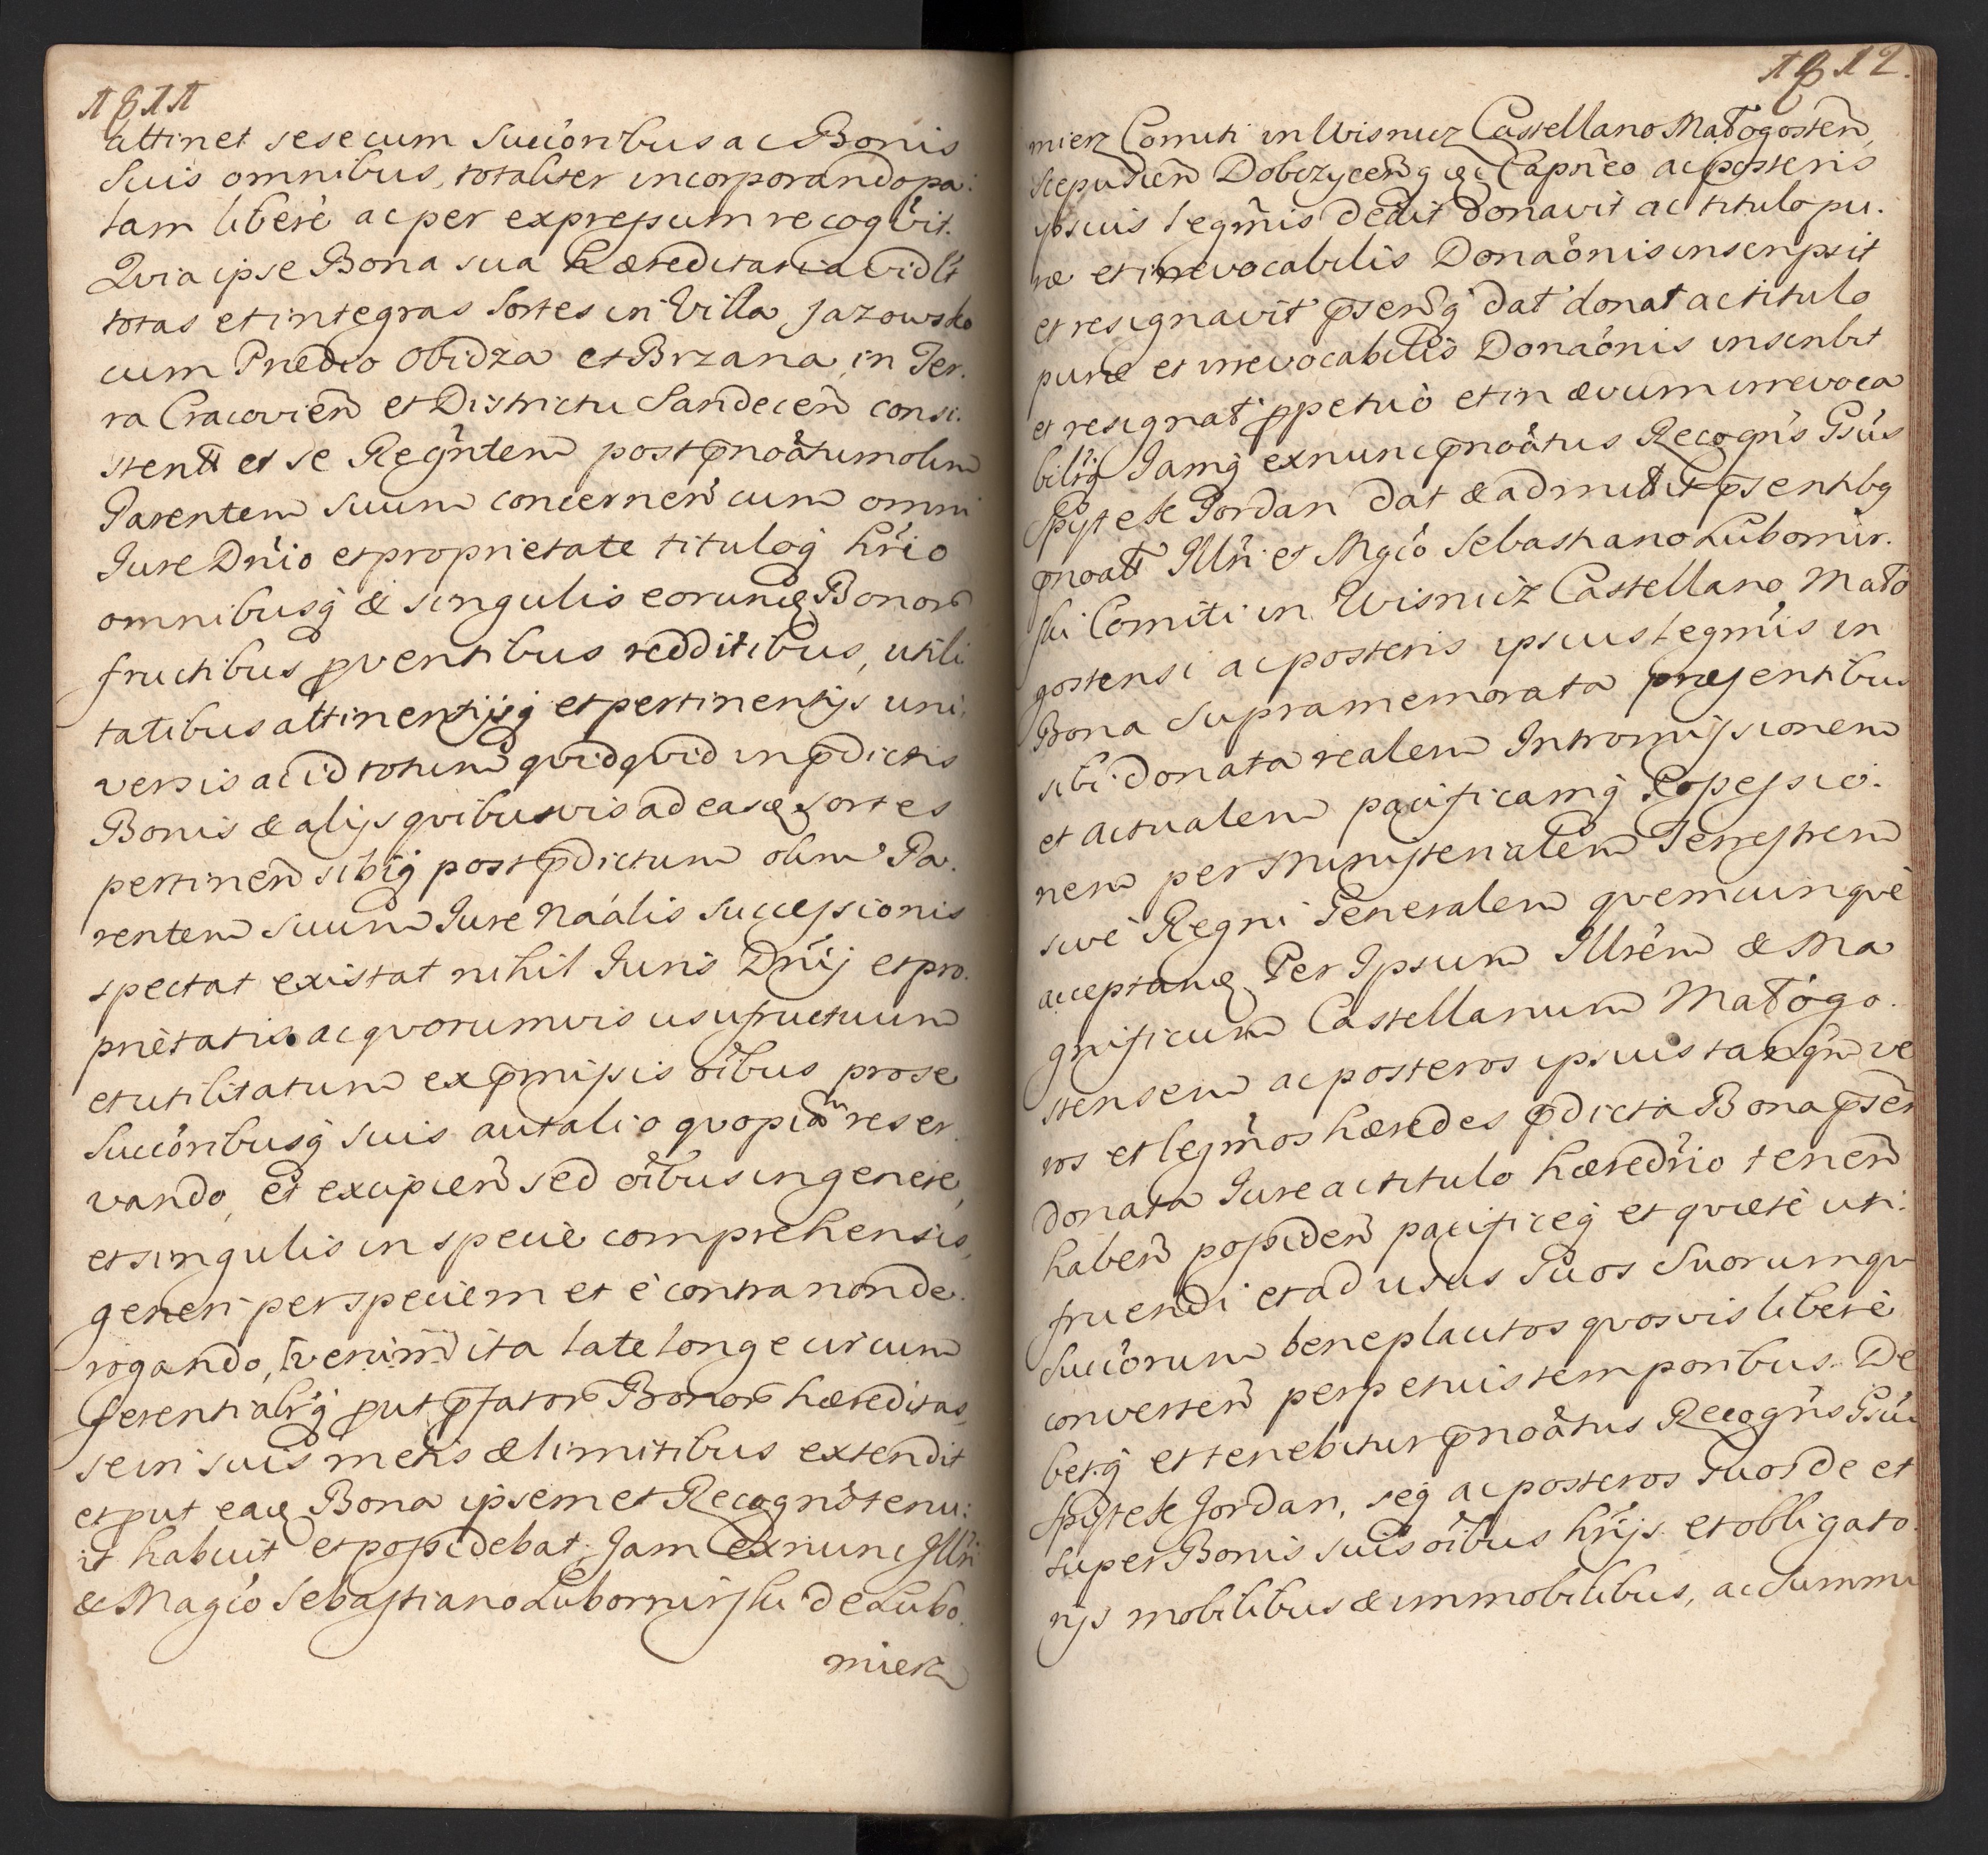 1811
attinet sese cum Succoribus ac Bonis
Suis omnibus, totaliter incorporando pa:
lam libere ac per expressum recogvit.
Qvia ipse Bona sua Hæreditaria vidlt
totas et integras Sortes in Villa Jazowsko
cum Prædio Obidza et Brzana, in Ter.
ra Cracovien et Districtu Sandecen consi.
stent et se Regntem post pnoatum olim
Parentem suum concernen cum omni
Jure Dnio et proprietate tituloq hrio
omnibusq & singulis eorundq Bonor
fructibus pventibus redditibus, utili
tatibus attinentijsq et pertinentijs uni.
versis ac id totum qvidqvid in pdictis
Bonis & alijs qvibusvis ad easq sortes
pertinen sibiq post pdictum olim Pa.
rentem suum Jure Naalis successionis
spectat existat nihil Juris Dnij et pro.
prietatis ac qvorumvis usufructuum
et utilitatum ex pmissis oibus pro se
Succoribusq suis aut alio qvopiam reser.
vando, et excipien sed oibus in genere,
et singulis in specie comprehensis,
generi per speciem et è contra non de.
rogando, verum ita late longe circum
ferentialrq put pfator Bonor hæreditas,
se in suis metis & limitibus extendit
et put eaq Bona ipsemet Recogns tenu:
it habuit et possidebat. Jam ex nunc Illri
& Magco Sebastiano Lubomirski de Lubo.
mierz
1812.
mierz Comiti in Wisnicz Castellano Małogosten,
Scepusien Dobczycen q & Capneo ac posteris
ipsius legmis dedit donavit ac titulo pu.
ræ et irrevocabilis Donaonis inscripsit
et resignavit psenq dat donat ac titulo
puræ et irrevocabilis Donaonis inscribit
et resignat ppetuò et in ævum irrevoca
bilrq Jamq ex nunc pnoatus Recogns Gsus
Spytek Jordan dat & admittit psentibq
pnoatt Illri et Mgco Sebastiano Lubomir.
ski Comiti in Wisnicz Castellano Mało
gostensi ac posteris ipsius legmis in
Bona supramemorata præsentibus
sibi donata realem Intromissionem
et actualem pacificamq Possessio.
nem per Ministerialem Terrestrem
sivè Regni Generalem qvemcunqvè
acceptanq Per Ipsum Illrem & Ma
gnificum Castellanum Małogo.
stensem ac posteros ipsius tanqm ve
ros et legmos hæredes pdicta Bona psen
donata Jure ac titulo hæredrio tenen
haben possiden pacificeq et qvietè uti:
fruendi et ad usus suos Suorumqv
Succorum beneplacitos qvosvis liberè
converten perpetuis temporibus. De
betq et tenebitur pnoatus Recogns Gsus
Spytek Jordan, seq ac posteros suos de et
super Bonis suis oibus hrijs et obligato
rijs mobilibus & immobilibus, ac Summi